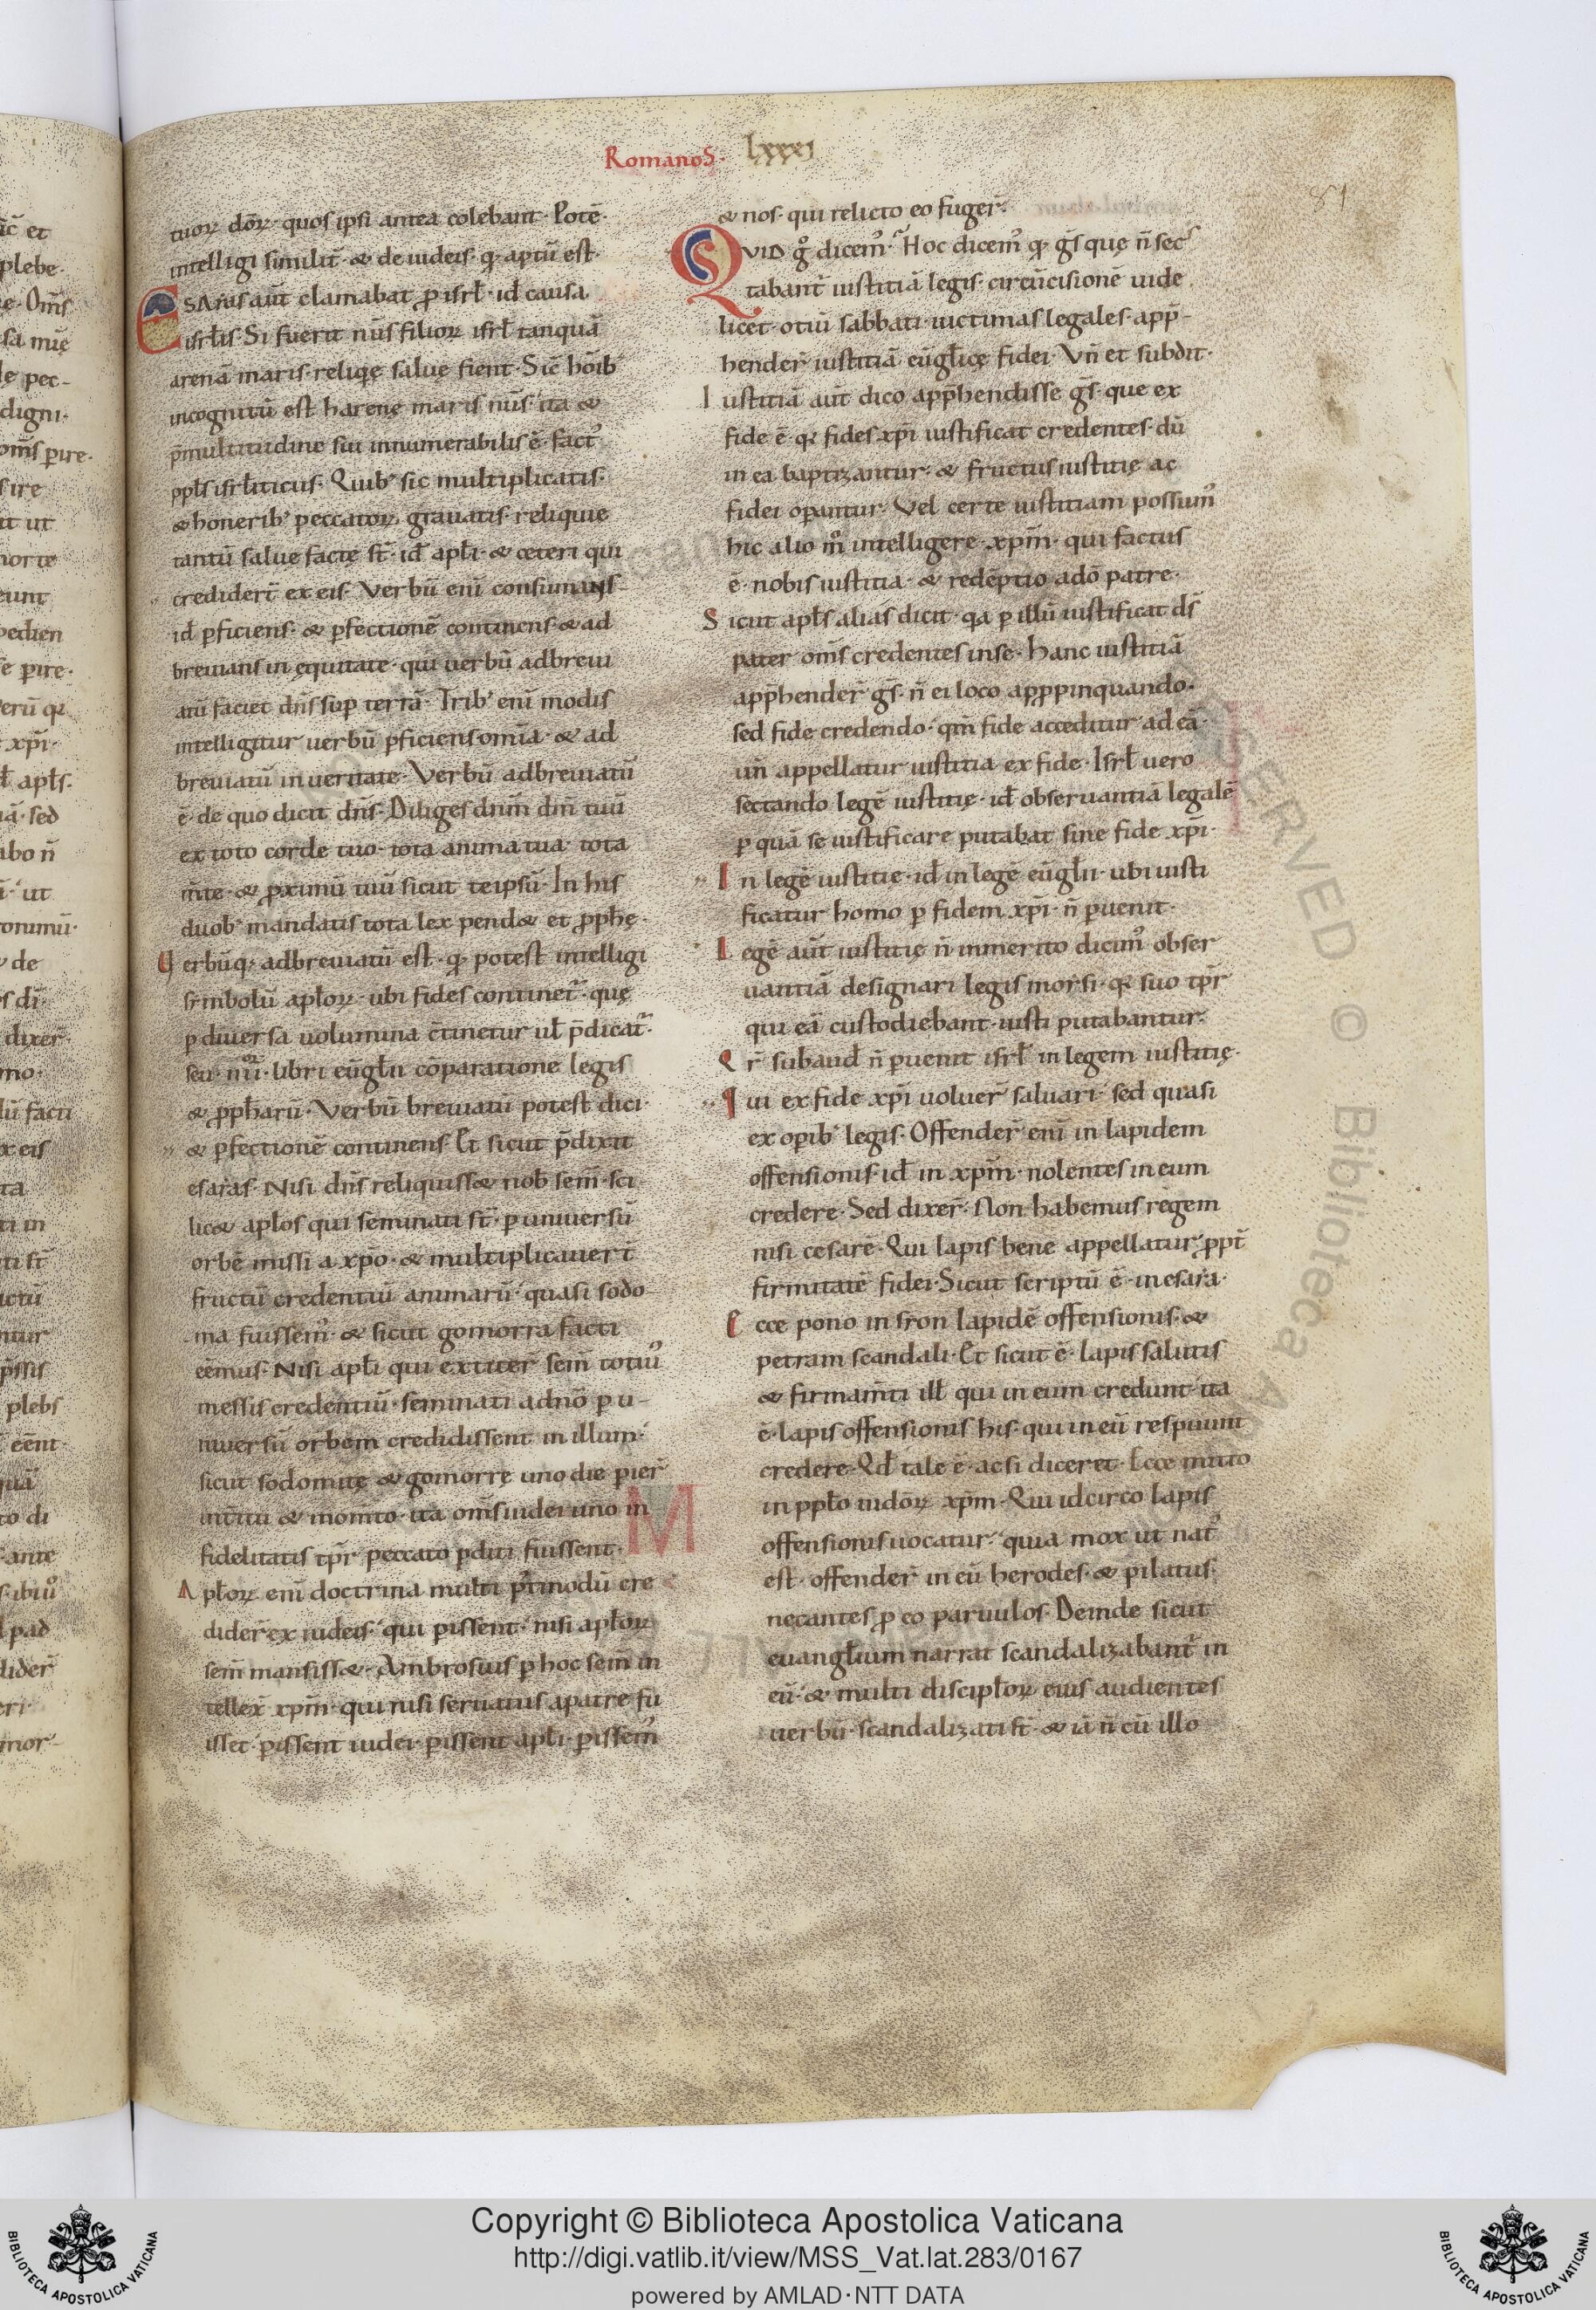 Romanos. lxxxj
81
tuoꝝ dōꝝ. quos ipsi antea colebant. Potē.
intelligi similit̄. & de iudeis. qꝛ aptū est.
ESAIAS aūt clamabat ꝓ isrł. id̄ causa
isrłis. Si fuerit nūs filioꝝ isrł tanquā
arenā maris. reliqię salue fient. Sic̄ hōib
incognitū est harenę maris nūs. ita &
p̄ multitudine sui innumerabilis ē. fact᾽
ppłs isrłiticus. Quib᾽ sic multiplicatis.
& honerib᾽ peccatoꝝ grauatis. reliquie
tantū salue factę st̄. id̄ apłi. & ceteri qui
credider̄t ex eis. Verbū eni̅ consumans
id̄ ꝑficiens. & ꝑfectionē continens. & ad
breuians in equitate. qui uerbū adbreui
atū faciet dn̄s suꝑ terrā. Trib᾽ eni̅ modis
intelligitur uerbū ꝑficiens omīa. & ad
breuiatū in ueritate. Verbū adbreuiatū
ē. de quo dicit dn̄s. Diliges dnm̄ dm̄ tuū
ex toto corde tuo. tota anima tua. tota
m̄te. & ꝓximū tuū sicut teipsū. In his
duob᾽ mandatis tota lex pend& et ꝓphę.
Verbūqꝫ adbreuiatū est. qꝛ potest intelligi
simbolū apłoꝝ. ubi fides continet᾽. quę
ꝑ diuersa uolumina c̄tinetur uł p̄dicat᾽.
seu .iiiiᵒʳ. libri eūgłii cōparatione legis
& ꝓpharū. Verbū breuiatū potest dici.
& ꝑfectionē continens. Et sicut p̄dixit
esaias. Nisi dn̄s reliquiss& nob̄ sem̄. sci
lic& apłos qui seminati st̄. ꝑ uniuersū
orbē missi a xp̄o. & multiplicauer̄t
fructū credentiū animarū. quasi sodo
ma fuissem᾽. & sicut gomorra facti
eēmus. Nisi apłi qui extiter̄ sem̄ toti᾽
messis credentiū. seminati a dn̄o ꝑ u-
niuersū orbem credidissent in illum.
sicut sodomitę & gomorrę uno die ꝑier̄
int̄itu & mom̄to. ita om̄s iudei uno in
fidelitatis tp̄r peccato ꝑditi fuissent.
Apłoꝝ eni̅ doctrina multi p̄t modū cre
dider̄ ex iudeis. qui ꝑissent. nisi apłoꝝ
sem̄ mansiss&. Ambrosius ꝑ hoc sem̄ in
tellex̄ xpm̄. qui nisi seruatus a patre fu
isset. ꝑissent iudei. ꝑissent apłi. ꝑissem᾽
& nos. qui relicto eo fuger̄.
QVID gᵒ dicem᾽. Hoc dicem᾽ qꝛ gs̄ quę n̄ sec
tabant᾽ iustitiā legis. circūcisionē uide
licet. otiū sabbati. uictimas legales. app̄-
hender̄ iustitiā eūglicę fidei. Vn̄ et subdit.
Iustitiā aūt dico app̄hendisse gs̄. que ex
fide ē. qꝛ fides xp̄i iustificat credentes. dū
in ea baptizantur. & fructus iustitię ac
fidei oꝑantur. Vel certe iustitiam possum᾽
hic alio mᵒ intelligere. xpm̄. qui factus
ē. nobis iustitia. & redēptio a dō patre.
Sicut apłs alias dicit. qa ꝑ illū iustificat ds̄
pater om̄s credentes in se. Hanc iustitiā
app̄hender̄ gs̄. n̄ ei loco apꝓpinquando.
sed fide credendo. qm̄ fide acceditur ad eā.
un̄ appellatur iustitia ex fide. Isrł uero
sectando legē iustitię. id̄ obseruantiā legalē
ꝑ quā se iustificare putabat sine fide xp̄i.
In legē iustitię. id̄ in legē eūgłii. ubi iusti
ficatur homo ꝑ fidem xp̄i. n̄ ꝑuenit.
Legē aūt iustitię n̄ inmerito dicim᾽ obser
uantiā designari legis moysi. qꝛ suo tp̄r
qui eā custodiebant. iusti putabantur.
Qr̄ subaud̄ n̄ ꝑuenit isrł in legem iustitię.
Qui ex fide xp̄i uoluer̄ saluari. sed quasi
ex oꝑib᾽ legis. Offender̄ eni̅ in lapidem
offensionis. id̄ in xpm̄. nolentes in eum
credere. Sed dixer̄. Non habemus regem
nisi cesarē. Qui lapis bene appellatur. ꝓpt̄
firmitatē fidei. Sicut scriptū ē. in esaia.
Ecce pono in syon lapidē offensionis. &
petram scandali. Et sicut ē. lapis salutis
& firmam̄ti ill̄ qui in eum credunt. ita
ē. lapis offensionis his. qui in eū respuunt
credere. Qd̄ tale ē. ac si diceret. Ecce mitto
in ppło iudoꝝ xpm̄. Qui idcirco lapis
offensionis uocatur. quia mox ut nat᾽
est. offender̄ in eū herodes. & pilatus.
necantes ꝓ eo paruulos. Deinde sicut
euangłium narrat scandalizabant᾽ in
eū. & multi discipłoꝝ eius audientes
uerbū. scandalizati st̄. & iā n̄ cū illo
Copyright © Biblioteca Apostolica Vaticana
http://digi.vatlib.it/view/MSS_Vat.lat.283/0167
powered by AMLAD·NTT DATA
BIBLIOTECA APOSTOLICA VATICANA
BIBLIOTECA APOSTOLICA VATICANA